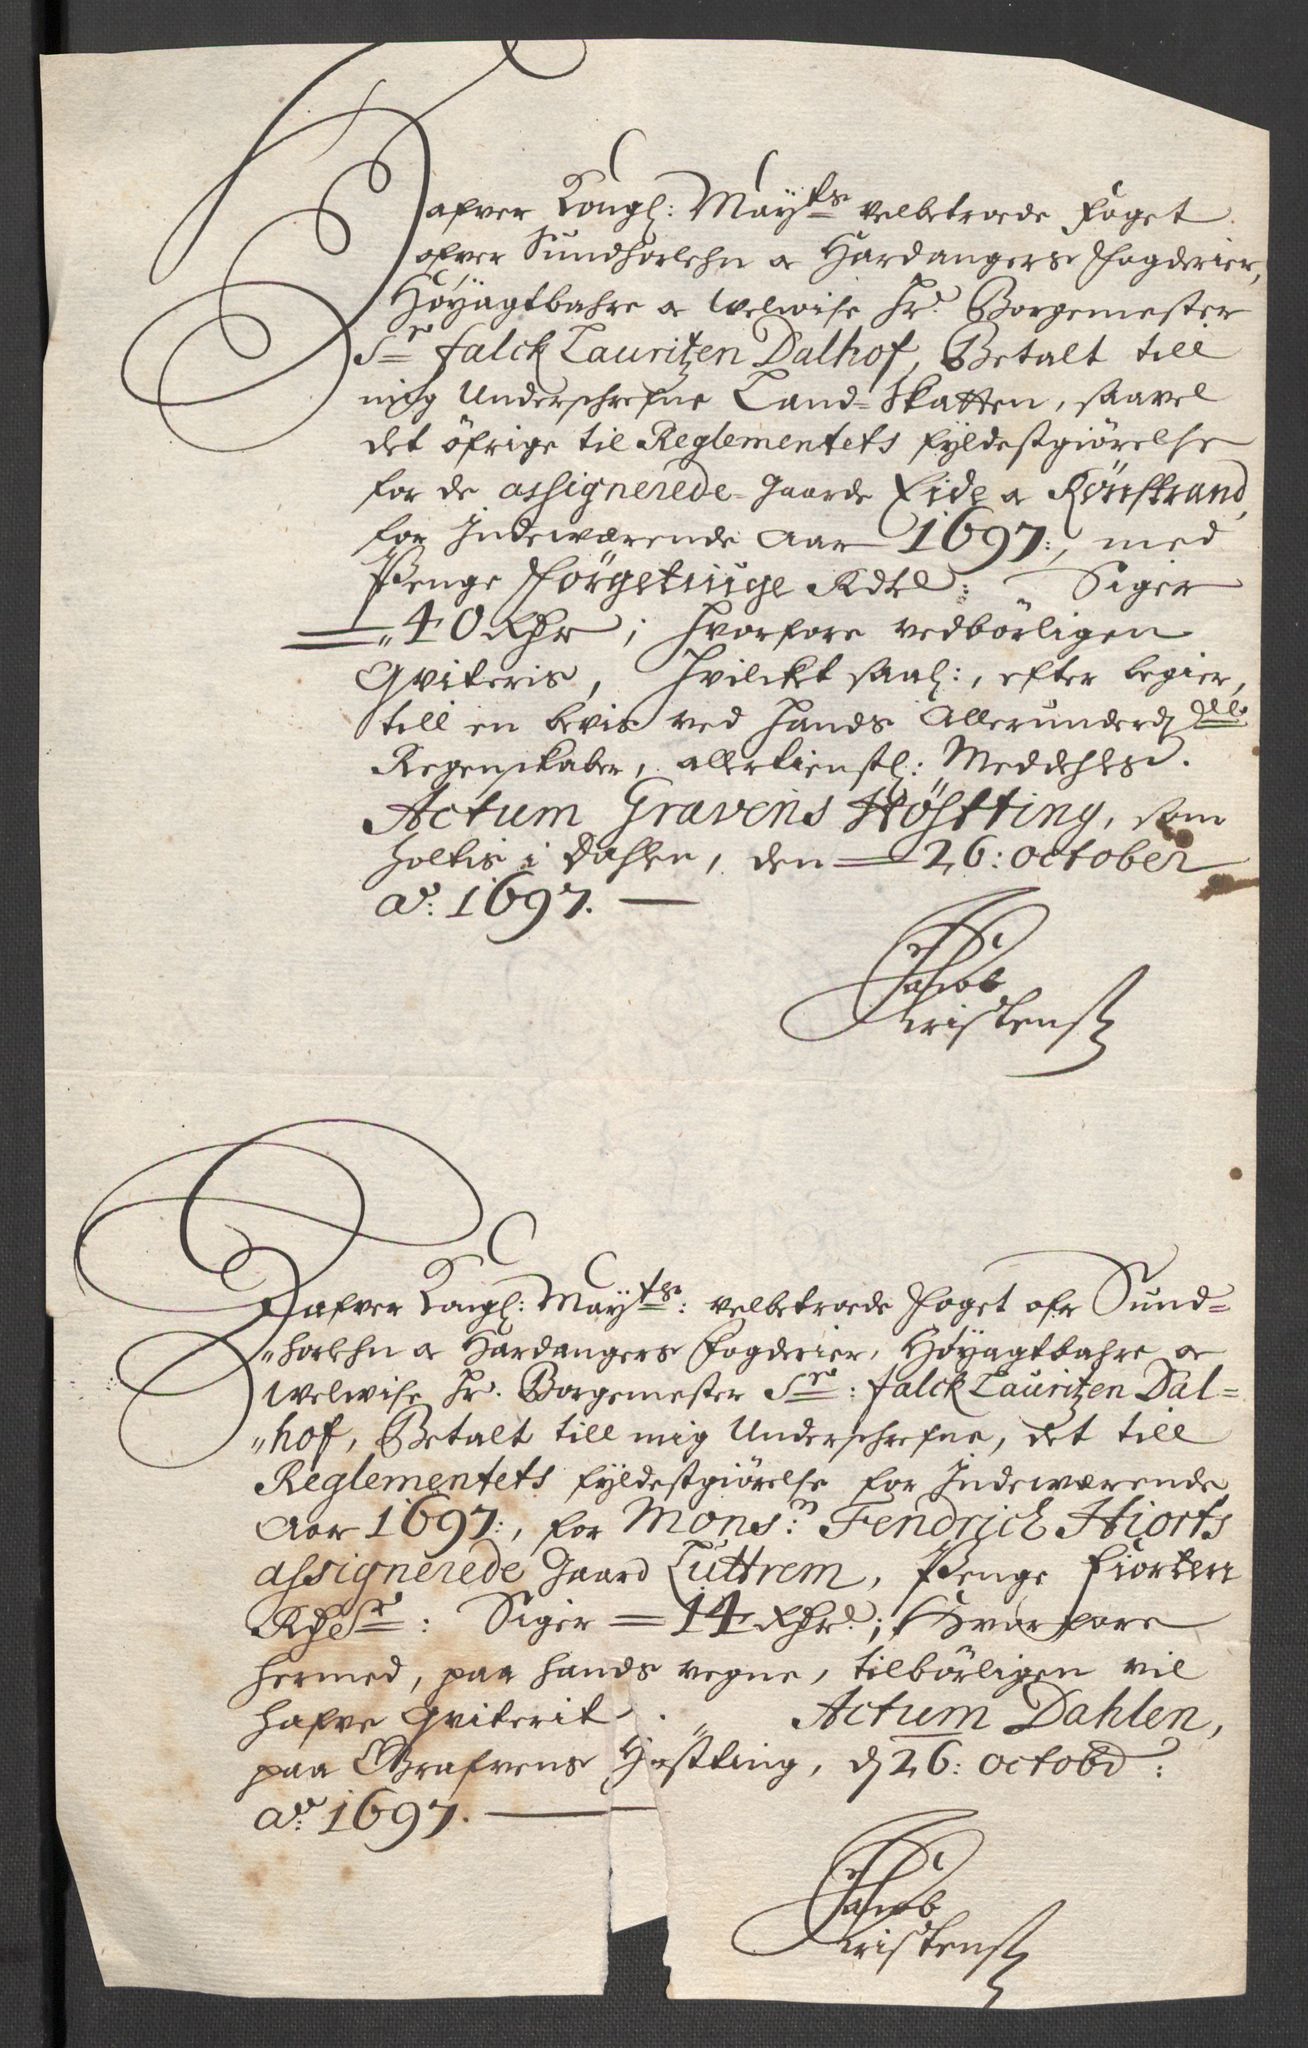 Hafver Kongl: Mayts velbetroede foget
ofver Sundhorlehn og Hardangers Fogderier,
Høyagtbahre og Welwise Hr. Borgemester
Sr Falck Lauritzen Dalhof, Betalt till
mig Underschrefne Land-Skatten, saavel
det öfrige til Reglementets fyldestgiörelse
for de assignerede Gaarde Eide og
for Indeværende Aar 1697:, med
Penge Förgetiuge Rdlr: Siger
40 Rdr; Hvorfore vedbörligen
Qviteris, Hvilcket saal:, efter begier,
till en bevis ved Hands Allerund
Regenskaber, allertienstl: Meddehles.
Actum Gravens Höstting, som
holtis i Dahlen, den 26: october
ao: 1697.
Jacob
Kristens
Hafver Kongl: Mayts: velbetroede Foget ofr Sund=
"horlehn og Hardangers Fogderier, Høyagtbahre og
Welwise Hr. Borgemester Sr: Falck Lauritzen Dal=
"hof, Betalt till mig Underschrefne, det till
Reglementets fyldestgiörelse for Indeværende
Aar 1697:, for Monsr: Fendrich Hiorts
assignerede Gaard Luttrem, Penge Fiorten
Rdr: Siger = 14 Rdr; Hvorfore
hermed, paa hands vegne, tilbörligen vil
hafve Qviterit. Actum Dahlen,
paa Grafvens Høstting, d 26: octobr:
ao: 1697.
Jacob
Kristens